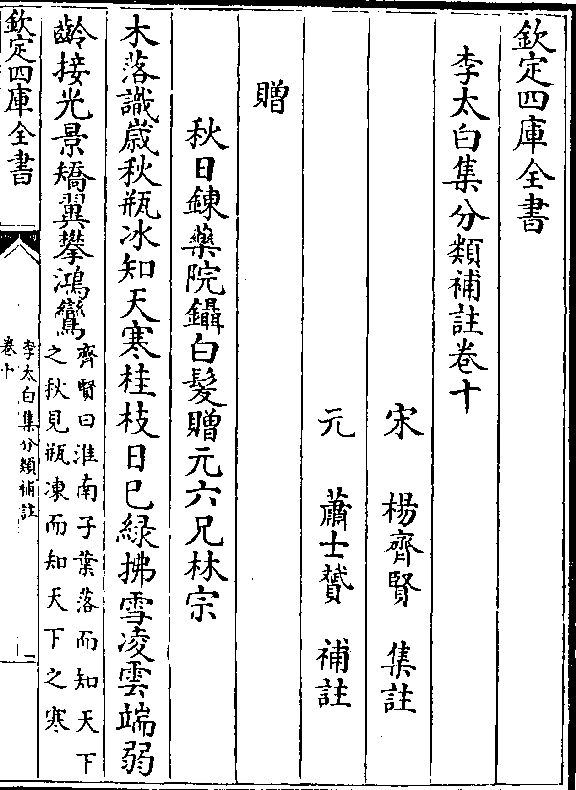 欽定四庫全書
李太白集分類補註卷十
宋 楊齊賢 集註
元 蕭士贇 補註
贈
秋日鍊藥院鑷白髮贈元六兄林宗
木落識歲秋瓶冰知天寒桂枝日已綠拂雪凌雲端弱
齡接光景矯翼攀鴻鸞
齊賢曰淮南子葉落而知天下
之秋見瓶凍而知天下之寒
欽定四庫全書
李太白集分類補註
卷十
一